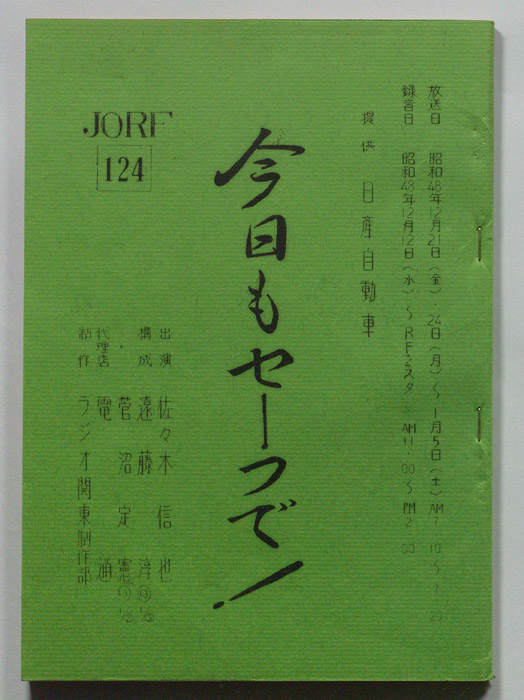 放送日 昭和48年12月21日(金) 24日(月)〜1月5日(土) AM7:10〜7:20
録音日 昭和48年12月12日(水)〜RF2スタ AM11:00〜PM2:00
提供 日産自動車
今日もセーフで!
JORF
124
出演 佐々木信也
構成 遠藤淳
菅沼定憲
代理店 電通
制作 ラジオ関東制作部